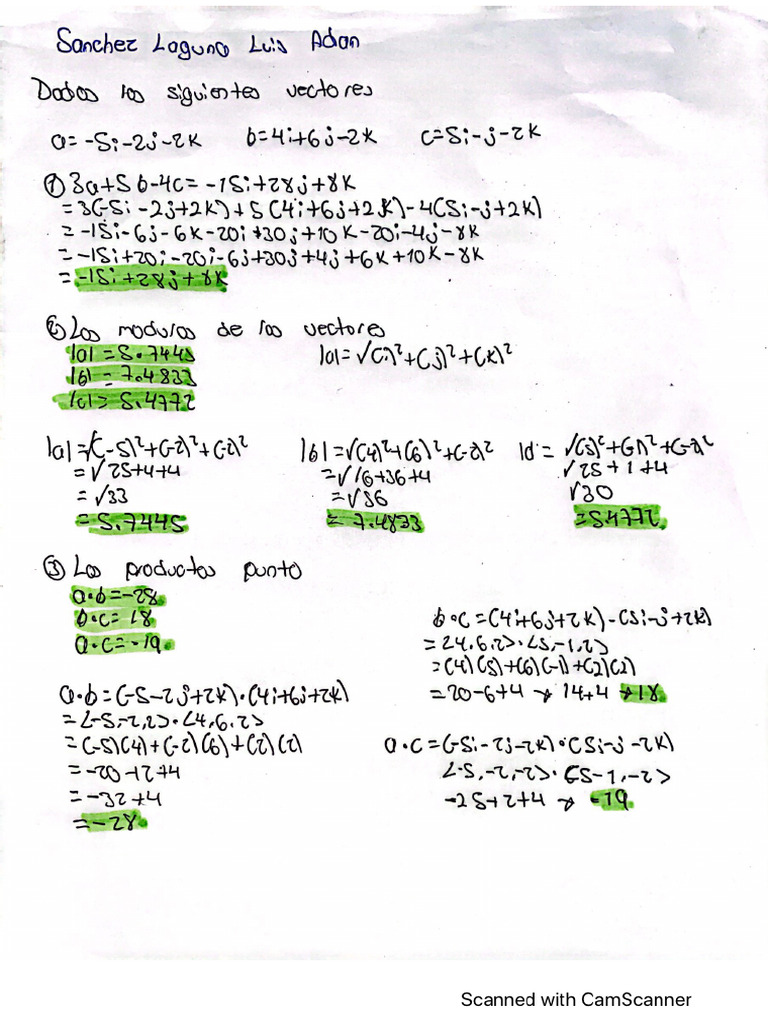 Sanchez Laguna Luis Adan
Dados los siguientes vectores
a=-5i-2j-2k b=4i+6j-2k c=5i-j-2k
① 3a+5b-4c=-15i+28j+8k
=3(-5i-2j+2k)+5(4i+6j+2k)-4(5i-j+2k)
=-15i-6j-6k-20i+30j+10k-20i-4j-8k
=-15i+20i-20i-6j+30j+4j+6k+10k-8k
=-15i+28j+8k
② Los modulos de los vectores
|a|=5.7445 |a|=√(i)²+(j)²+(k)²
|b|=7.4833
|c|=5.4772
|a|=√(-5)²+(-2)²+(-2)² |b|=√(4)²+(6)²+(-2)² |c|=√(5)²+(-1)²+(-2)²
=√25+4+4 =√16+36+4 √25+1+4
=√33 =√56 √30
=5.7445 =7.4833 =5.4772
③ Los productos punto
a·b=-28
b·c=18
a·c=-19
b·c=(4i+6j+2k)-(5i-j+2k)
=<4,6,2>·<5,-1,2>
=(4)(5)+(6)(-1)+(2)(2)
=20-6+4→14+4→18
a·b=(-5-2j+2k)·(4i+6j+2k)
=<-5,-2,2>·<4,6,2>
=(-5)(4)+(-2)(6)+(2)(2)
=-20-12+4
=-32+4
=-28
a·c=(-5i-2j-2k)·(5i-j-2k)
<-5,-2,-2>·<5-1,-2>
-25+2+4→-19
Scanned with CamScanner